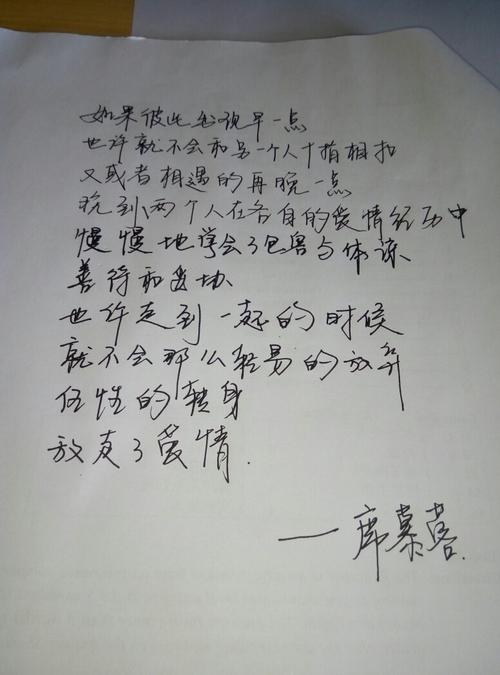 如果彼此出现早一点
也许就不会和另一个人十指相扣
又或者相遇的再晚一点
晚到两个人在各自的爱情经历中
慢慢地学会了包容与体谅
善待和妥协
也许走到一起的时候
就不会那么轻易的放弃
任性的转身
放走了爱情.
——席慕蓉.